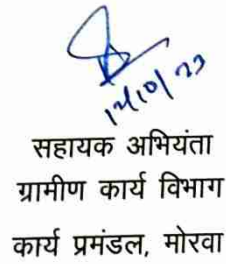 सहायक अभियंता
ग्रामीण कार्य विभाग
कार्य प्रमंडल, मोरवा